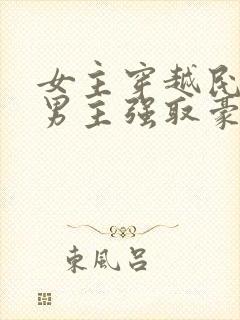 女主穿越民
男主强取豪
東風呂